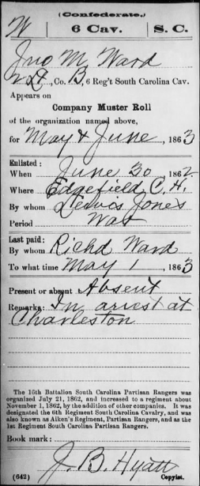 (Confederate.)
W 6 Cav. S. C.
Jno M. Ward
2 Lt, Co. B, 6 Reg't South Carolina Cav.
Appears on
Company Muster Roll
of the organization named above,
for May & June, 1863
Enlisted:
When June 30 1862
Where Edgefield C. H.
By whom Lewis Jones
Period War
Last paid:
By whom Richd Ward
To what time May 1, 1863
Present or absent Absent
Remarks: In arrest at
Charleston
The 16th Battalion South Carolina Partisan Rangers was
organized July 21, 1862, and increased to a regiment about
November 1, 1862, by the addition of other companies. It was
designated the 6th Regiment South Carolina Cavalry, and was
also known as Aiken's Regiment, Partisan Rangers, and as the
1st Regiment South Carolina Partisan Rangers.
Book mark:
J. B. Hyatt
(642) Copyist.